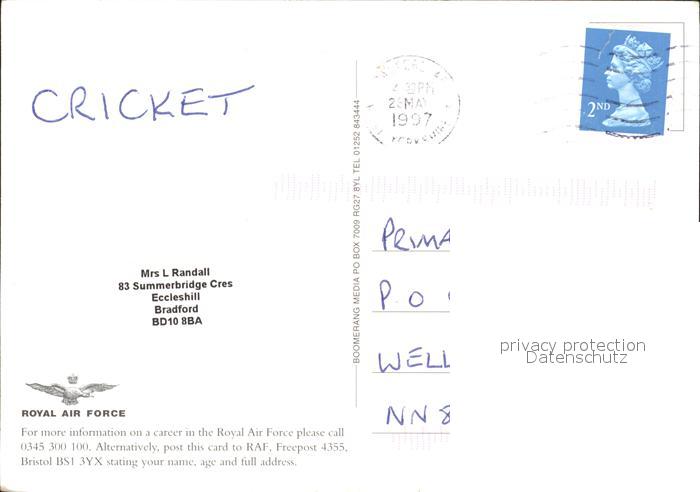 CRICKET
28 MAY
1997
2ND
BOOMERANG MEDIA PO BOX 7009 RG27 8YL TEL 01252 843444
PRIMA
P.O
WELL
NN8
privacy protection
Datenschutz
Mrs L Randall
83 Summerbridge Cres
Eccleshill
Bradford
BD10 8BA
ROYAL AIR FORCE
For more information on a career in the Royal Air Force please call
0345 300 100. Alternatively, post this card to RAF, Freepost 4355,
Bristol BS1 3YX stating your name, age and full address.